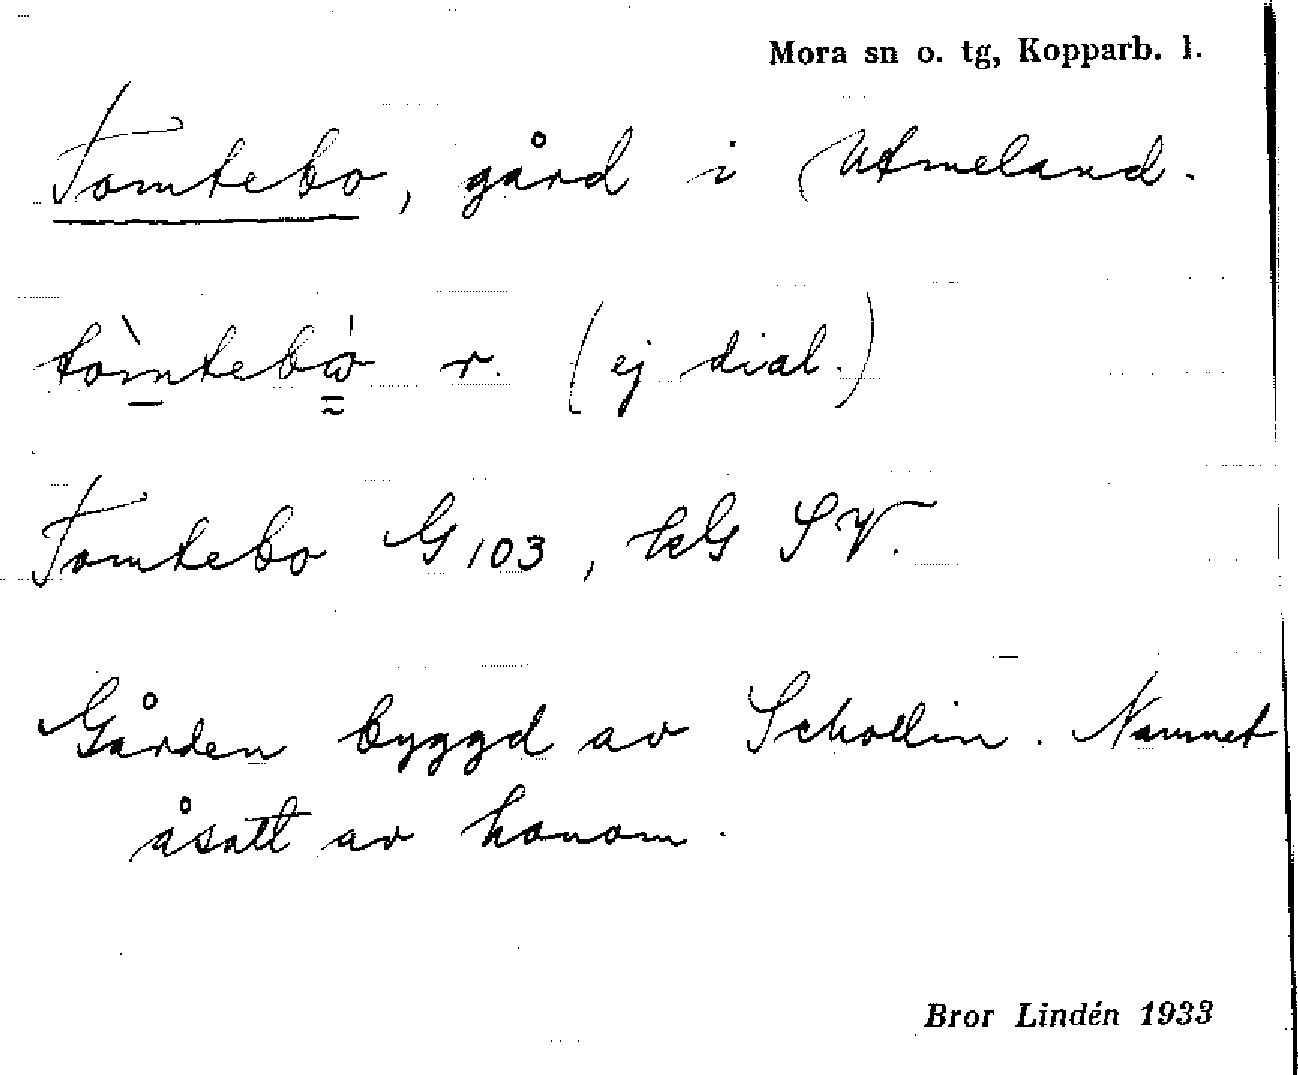 Mora sn o. tg, Kopparb. l.
Tomtebo, gård i Utmeland.
tòmtebω̍ r. (ej dial.)
Tomtebo G 103, kG SV.
Gården byggd av Schollin. Namnet
åsatt av honom.
Bror Lindén 1933